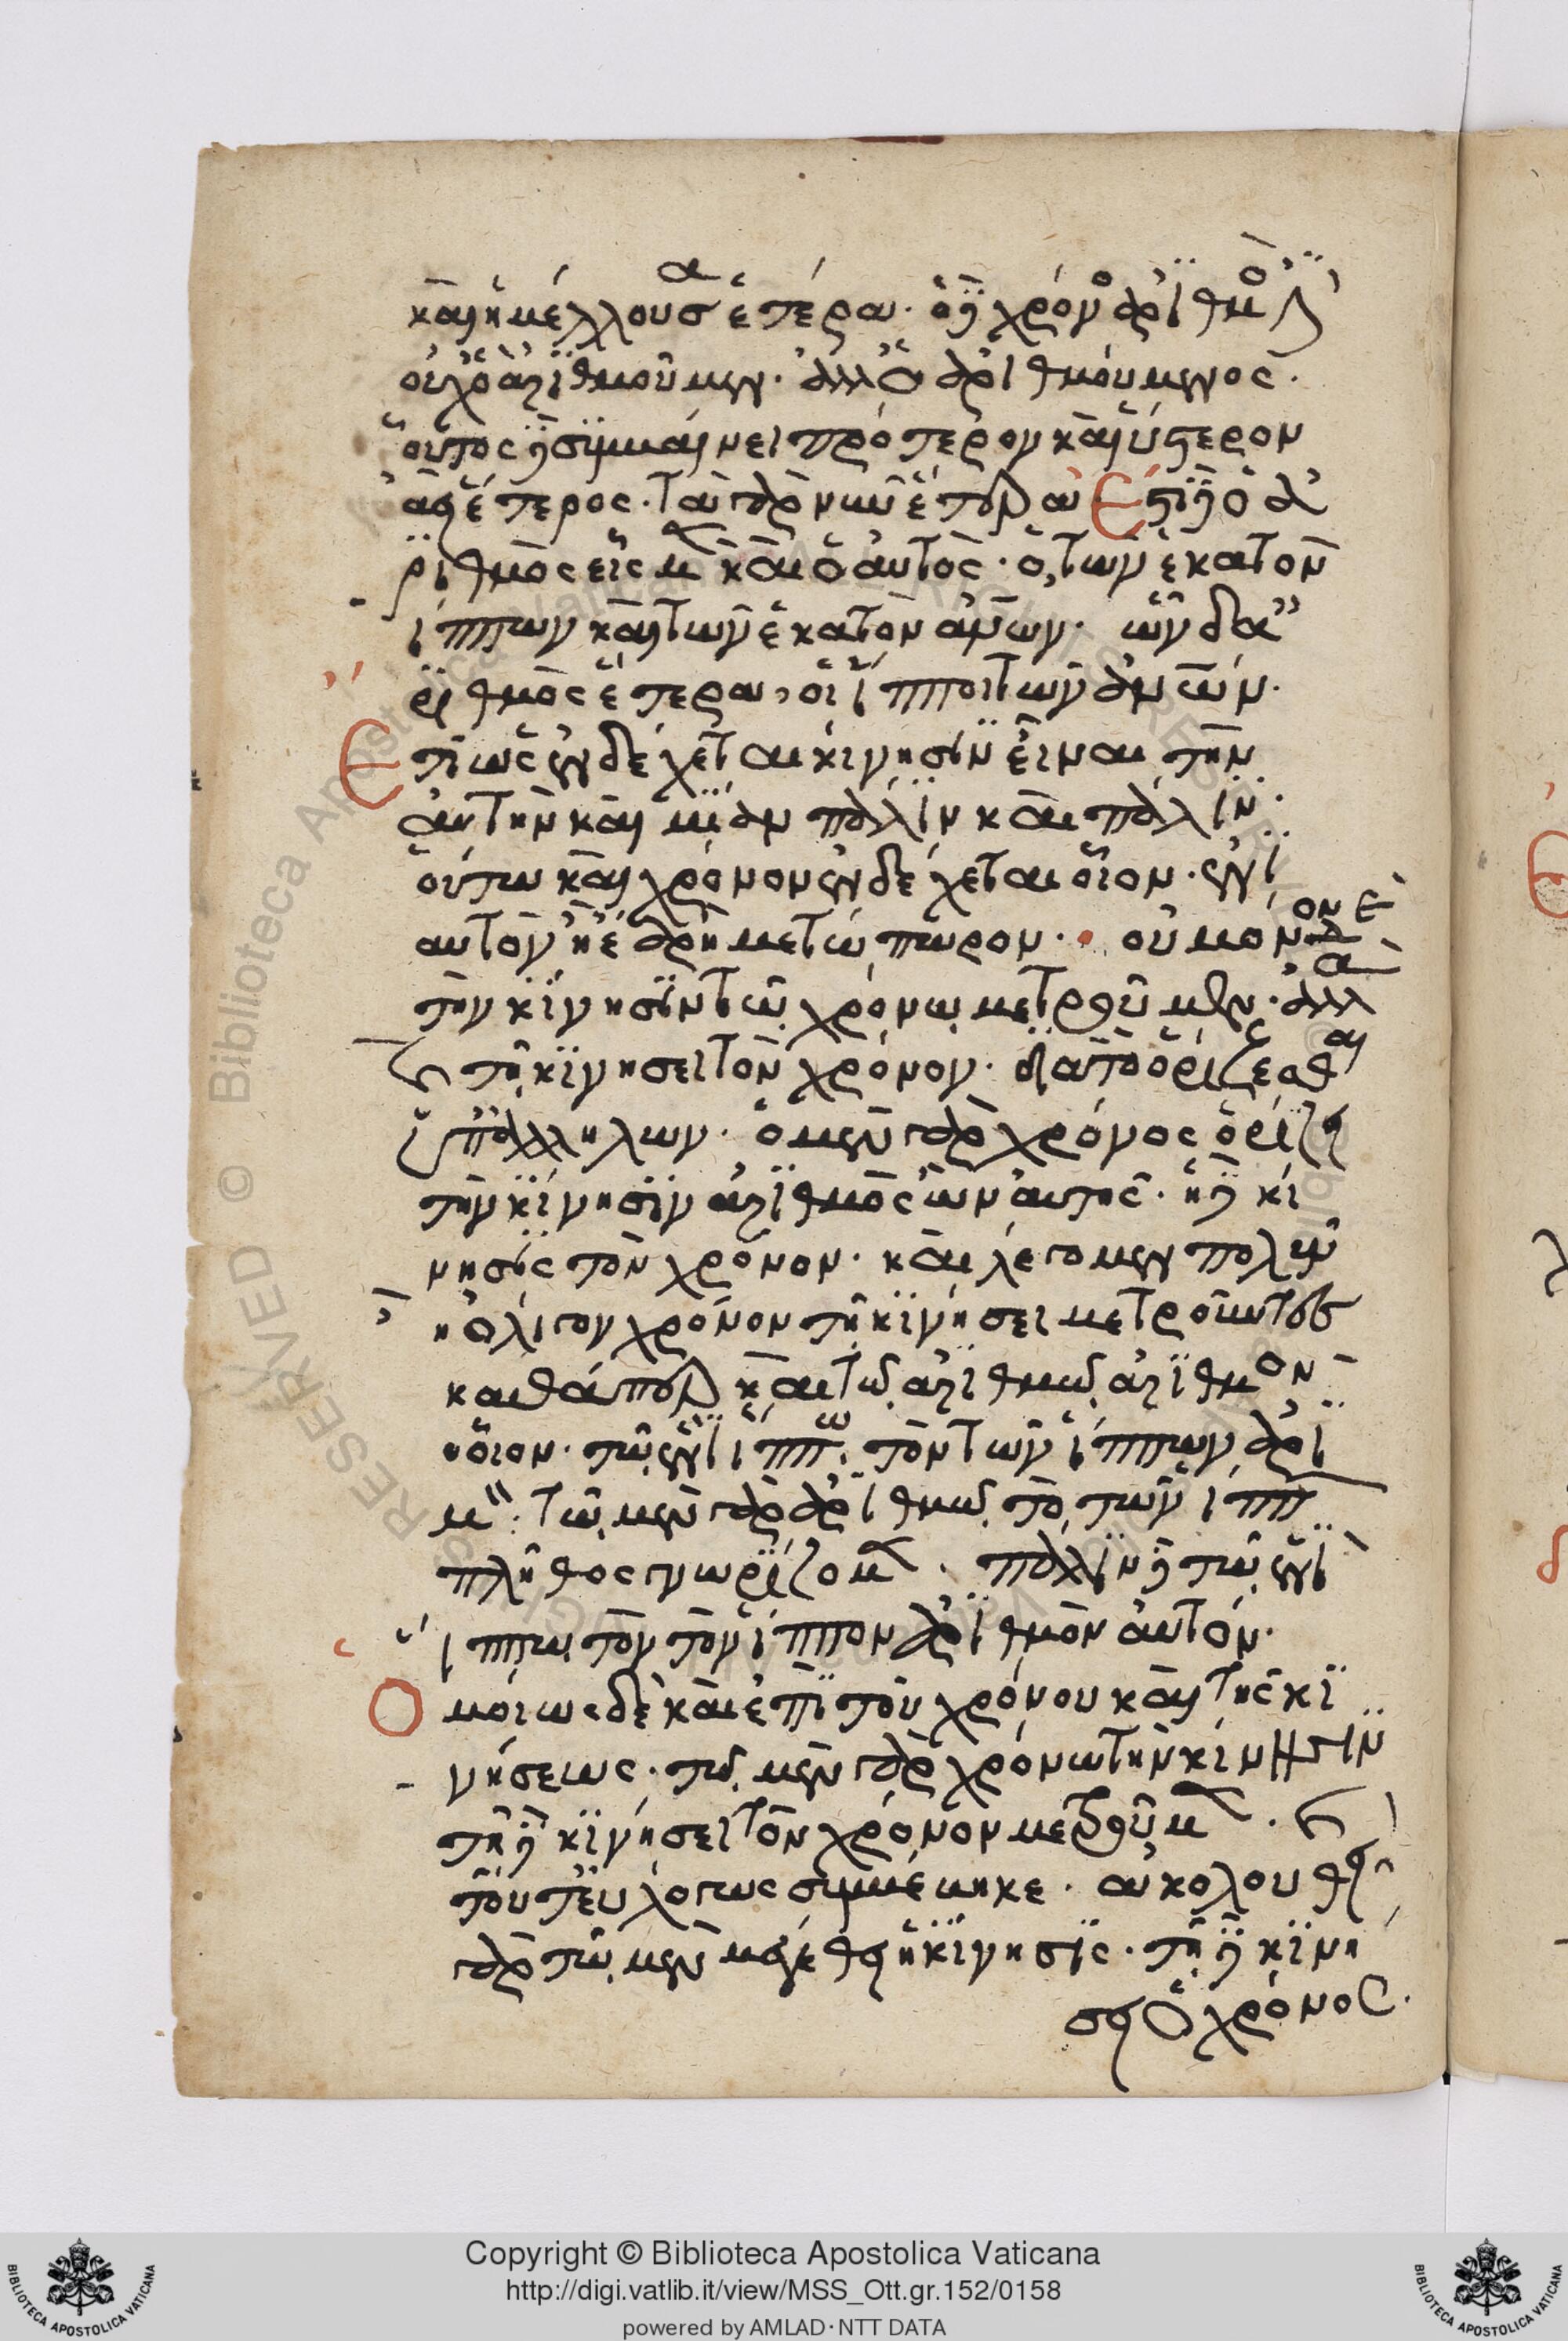 καὶ ἡ μέλλουσα ἑτέρα· ὁ δὲ χρόνος ἀριθμός ἐστιν
οὐχ ᾧ ἀριθμοῦμεν· ἀλλ' ὁ ἀριθμούμενος·
οὗτος δὲ συμβαίνει πρότερον καὶ ὕστερον
ἀεὶ ἕτερος· τὰ γὰρ νῦν ἕτερα· Ἔστι δὲ ὁ ἀ
ριθμὸς εἷς μὲν καὶ ὁ αὐτὸς· ὁ τῶν ἑκατὸν
ἵππων καὶ τῶν ἑκατὸν ἀνθρώπων· ὧν δὲ ἀ
ριθμὸς ἕτερα, οἱ ἵπποι τῶν ἀνθρώπων·
Ἔτι ὡς ἐνδέχεται κίνησιν εἶναι τὴν
αὐτὴν καὶ μίαν πάλιν καὶ πάλιν·
οὕτω καὶ χρόνον ἐνδέχεται οἷον· ἐνι
αυτὸν ἢ ἔαρ ἢ μετόπωρον· οὐ μόνον δὲ
τὴν κίνησιν τῷ χρόνῳ μετροῦμεν· ἀλλὰ
καὶ τῇ κινήσει τὸν χρόνον· διὰ τὸ ὁρίζεσθαι
ὑπ' ἀλλήλων· ὁ μὲν γὰρ χρόνος ὁρίζει
τὴν κίνησιν ἀριθμὸς ὢν αὐτῆς· ἡ δὲ κί
νησις τὸν χρόνον· καὶ λέγομεν πολὺν
ἢ ὀλίγον χρόνον τῇ κινήσει μετροῦντες
καθάπερ καὶ τῷ ἀριθμῷ ἀριθμὸν
οἷον· τῷ ἑνὶ ἵππῳ τὸν τῶν ἵππων ἀρι
μόν· τῷ μὲν γὰρ ἀριθμῷ τὸ τῶν ἵππων
πλῆθος γνωρίζομεν· πάλιν δὲ τῷ ἑνὶ
ἵππῳ τὸν τῶν ἵππων ἀριθμὸν αὐτόν·
Ὁμοίως δὲ καὶ ἐπὶ τοῦ χρόνου καὶ τῆς κι
νήσεως· τῷ μὲν γὰρ χρόνῳ τὴν κίνησιν
τῇ δὲ κινήσει τὸν χρόνον μετροῦμεν· καὶ
τοῦτ' εὐλόγως συμβέβηκε· ἀκολουθεῖ
γὰρ τῷ μὲν μεγέθει ἡ κίνησις· τῇ δὲ κινή
σει ὁ χρόνος·
Copyright © Biblioteca Apostolica Vaticana
http://digi.vatlib.it/view/MSS_Ott.gr.152/0158
powered by AMLAD·NTT DATA